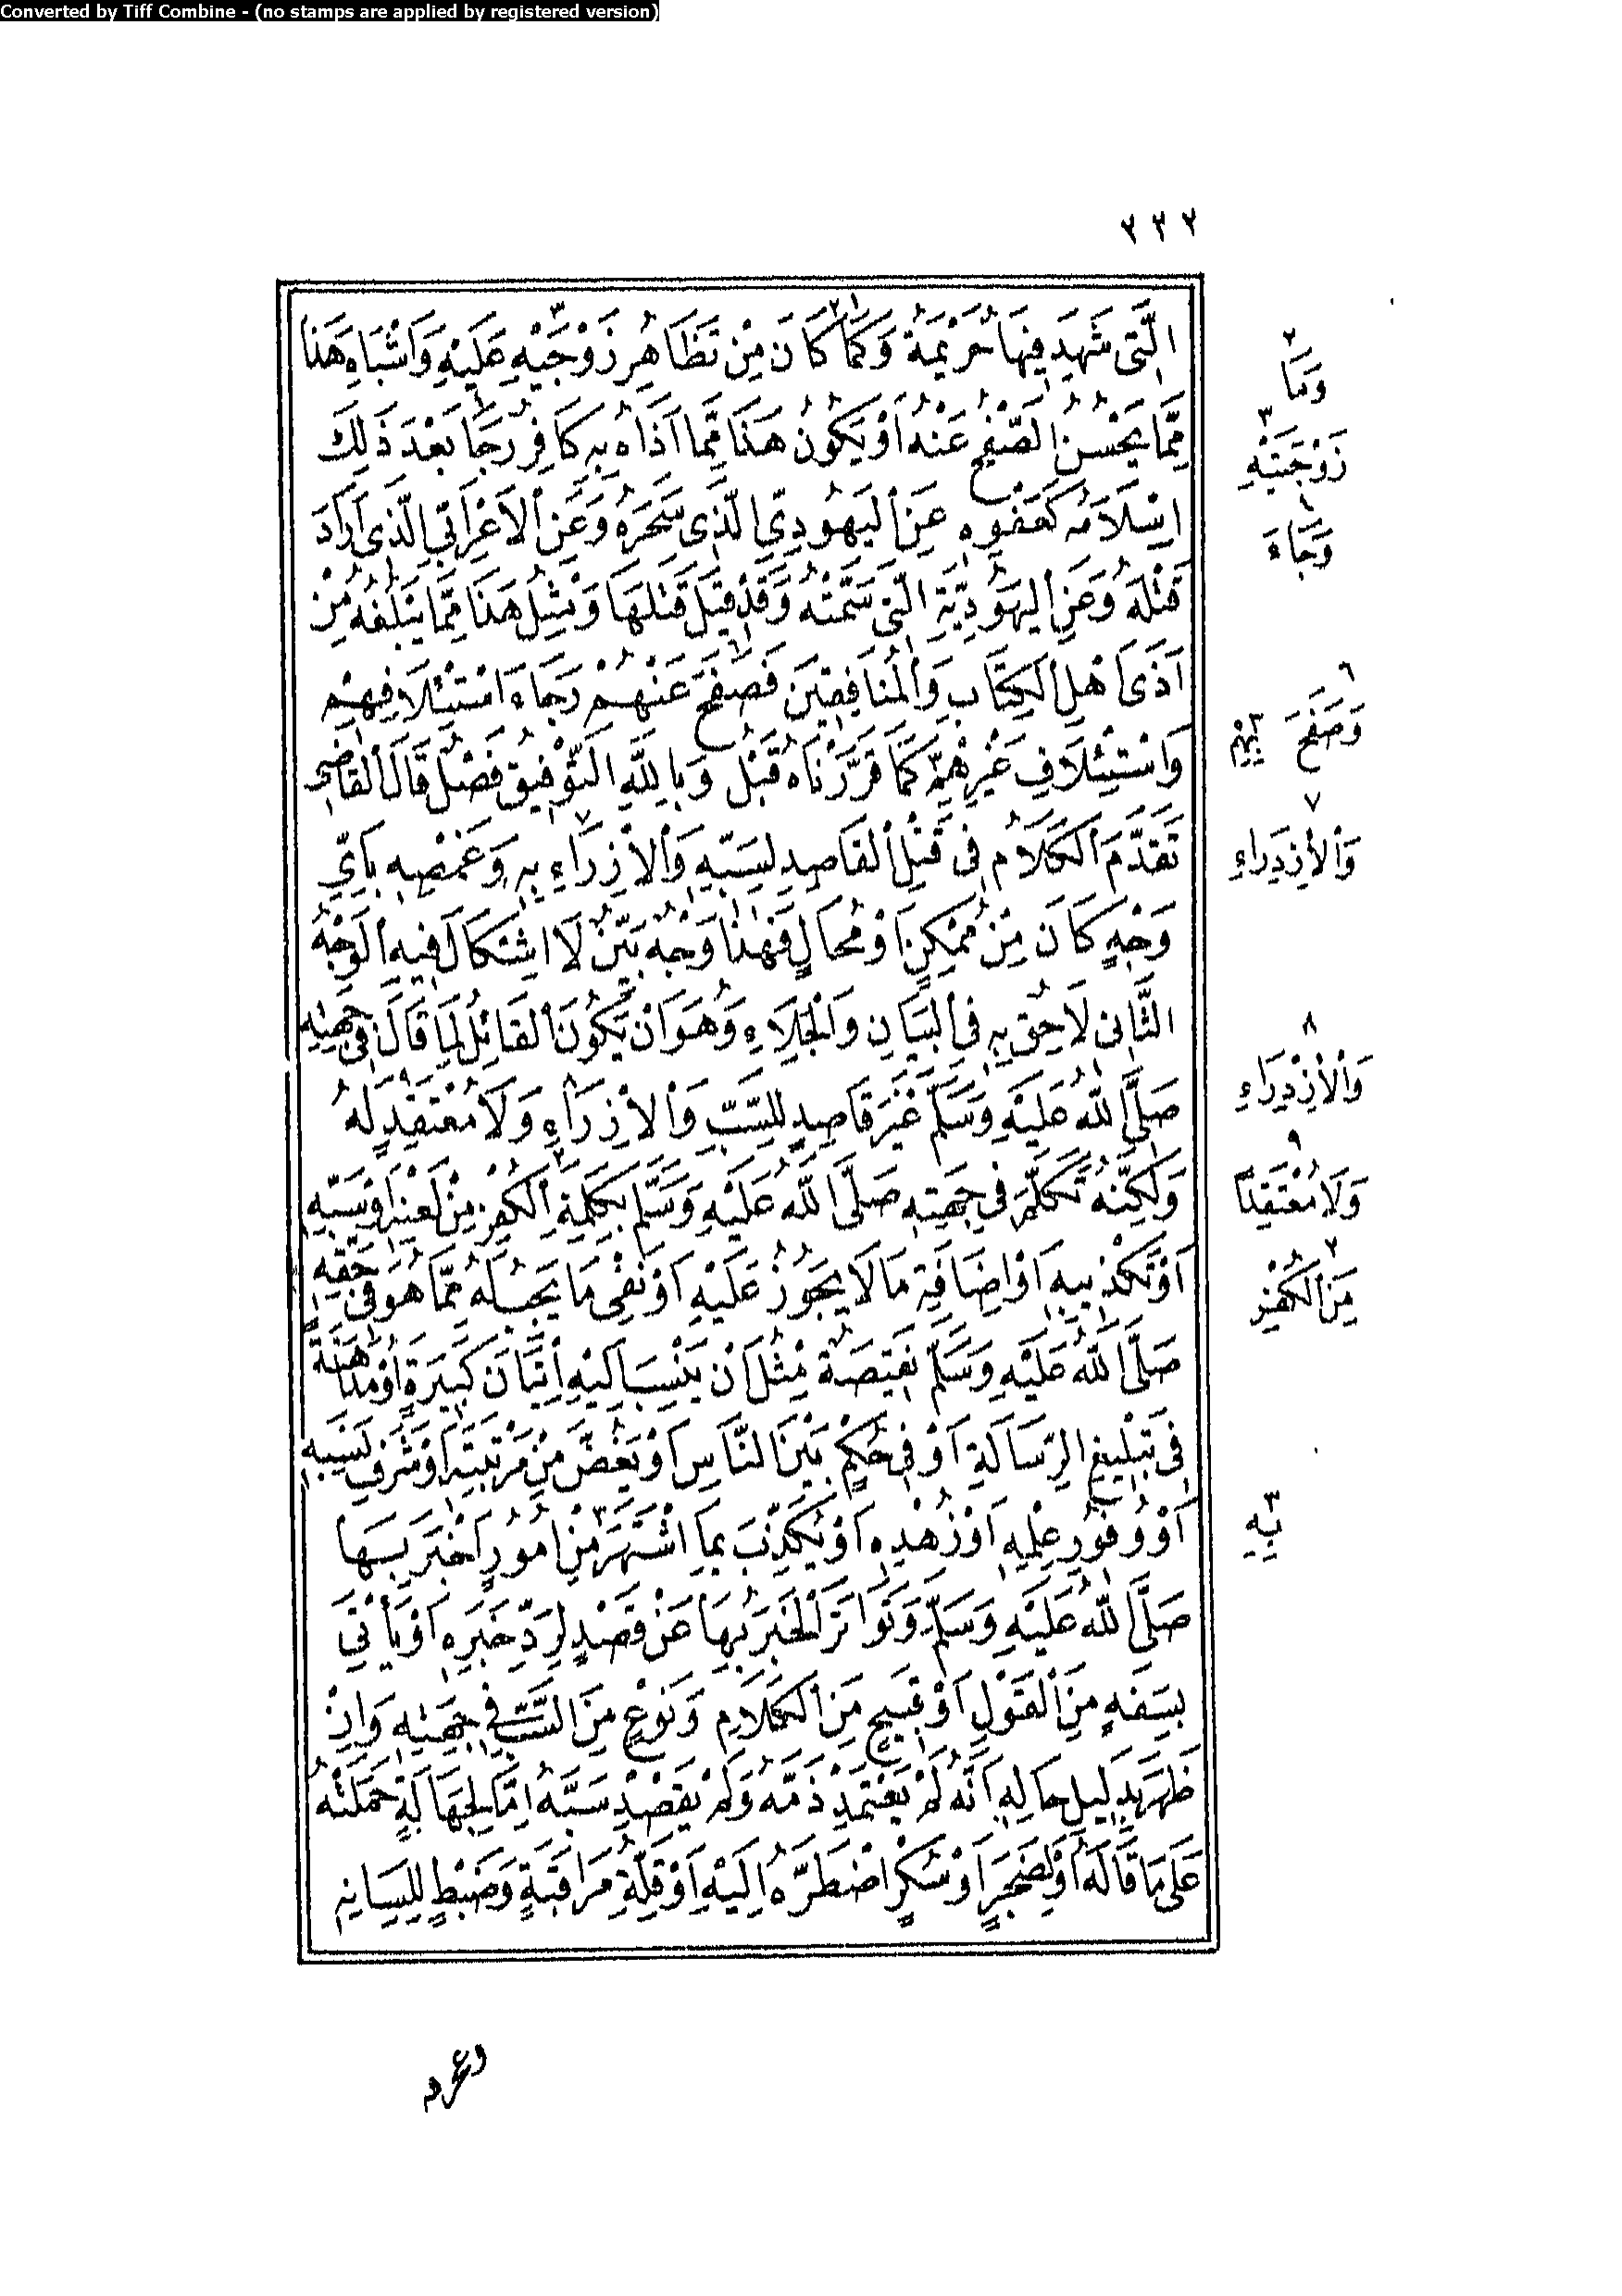 Converted by Tiff Combine - (no stamps are applied by registered version)
٢٣٢
الَّتِى شَهِدَ فِيهَا خُزَيْمَةُ وَكَمَا كَانَ مِنْ تَظَاهُرِ زَوْجَيْهِ عَلَيْهِ وَاَشْبَاهِ هَذَا
مِمَّا يَحْسُنُ الصَّفْحُ عَنْهُ اَوْ يَكُونُ هَذَا مِمَّا اَذَاهُ بِهِ كَافِرٌ رَجَا بَعْدَ ذَلِكَ
اِسْلَامَهُ كَعَفْوِهِ عَنِ الْيَهُودِىِّ الَّذِى سَحَرَهُ وَعَنِ الْاَعْرَابِىِّ الَّذِى اَرَادَ
قَتْلَهُ وَعَنِ الْيَهُودِيَّةِ الَّتِى سَمَّتْهُ وَقَدْ قِيلَ قَتَلَهَا وَمِثْلُ هَذَا مِمَّا يَبْلُغُهُ مِنْ
اَذَى اَهْلِ الْكِتَابِ وَالْمُنَافِقِينَ فَصَفَحَ عَنْهُمْ رَجَاءَ اسْتِئْلَافِهِمْ
وَاسْتِئْلَافِ غَيْرِهِمْ كَمَا قَرَّرْنَاهُ قَبْلُ وَبِاللَّهِ التَّوْفِيقُ فَصْلٌ قَالَ الْقَاضِى
تَقَدَّمَ الْكَلَامُ فِى قَتْلِ الْقَاصِدِ لِسَبِّهِ وَالْاِزْرَاءِ بِهِ وَغَمْصِهِ بِاَىِّ
وَجْهٍ كَانَ مِنْ مُمْكِنٍ اَوْ مُحَالٍ فَهَذَا وَجْهٌ بَيِّنٌ لَا اِشْكَالَ فِيهِ الْوَجْهُ
الثَّانِى لَاحِقٌ بِهِ فِى الْبَيَانِ وَالْجَلَاءِ وَهُوَ اَنْ يَكُونَ الْقَائِلُ لِمَا قَالَ فِى جِهَتِهِ
صَلَّى اللَّهُ عَلَيْهِ وَسَلَّمَ غَيْرَ قَاصِدٍ لِلسَّبِّ وَالْاِزْرَاءِ وَلَا مُعْتَقِدٍ لَهُ
وَلَكِنَّهُ تَكَلَّمَ فِى جِهَتِهِ صَلَّى اللَّهُ عَلَيْهِ وَسَلَّمَ بِكَلِمَةِ الْكُفْرِ مِنْ لَعْنِهِ اَوْ سَبِّهِ
اَوْ تَكْذِيبِهِ اَوْ اِضَافَةِ مَا لَا يَجُوزُ عَلَيْهِ اَوْ نَفْىِ مَا يَجِبُ لَهُ مِمَّا هُوَ فِى حَقِّهِ
صَلَّى اللَّهُ عَلَيْهِ وَسَلَّمَ نَقِيصَةٌ مِثْلُ اَنْ يَنْسِبَ اِلَيْهِ اِتْيَانَ كَبِيرَةٍ اَوْ مُدَاهَنَةً
فِى تَبْلِيغِ الرِّسَالَةِ اَوْ فِى حُكْمٍ بَيْنَ النَّاسِ اَوْ يَغُضَّ مِنْ مَرْتَبَتِهِ اَوْ شَرَفِ نَسَبِهِ
اَوْ وُفُورِ عِلْمِهِ اَوْ زُهْدِهِ اَوْ يُكَذِّبَ بِمَا اشْتَهَرَ مِنْ اُمُورٍ اَخْبَرَ بِهَا
صَلَّى اللَّهُ عَلَيْهِ وَسَلَّمَ وَتَوَاتَرَ الْخَبَرُ بِهَا عَنْ قَصْدٍ لِرَدِّ خَبَرِهِ اَوْ يَأْتِىَ
بِسَفَهٍ مِنَ الْقَوْلِ اَوْ قَبِيحٍ مِنَ الْكَلَامِ وَنَوْعٍ مِنَ السَّبِّ فِى جِهَتِهِ وَاِنْ
ظَهَرَ بِدَلِيلِ حَالِهِ اَنَّهُ لَمْ يَعْتَمِدْ ذَمَّهُ وَلَمْ يَقْصِدْ سَبَّهُ اِمَّا لِجَهَالَةٍ حَمَلَتْهُ
عَلَى مَا قَالَهُ اَوْ لِضَجَرٍ اَوْ سُكْرٍ اضْطَرَّهُ اِلَيْهِ اَوْ قِلَّةِ مُرَاقَبَةٍ وَضَبْطٍ لِلِسَانِهِ
٢
وَمَا
٣
زَوْجَتَيْهِ
١
وَجَاءَ
٦
وَصَفَحَ
٧
وَالْاِزْدِرَاءِ
٨
وَالْاِزْدِرَاءِ
٩
وَلَا مُعْتَقِدًا
٢
مِنَ الْكُفْرِ
٣
بِهِ